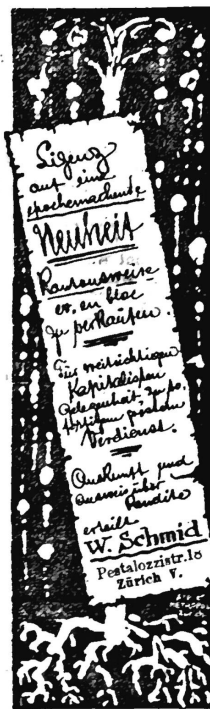 Lizenz
auf eine
epochemachende
Neuheit
Kantonsweise
ev. en bloc
zu verkaufen.
Für weitsichtigen
Kapitalisten
Gelegenheit, zu so-
fortigem grossem
Verdienst.
Auskunft und
Ausweis über
Rendite
erteilt
W. Schmid
Pestalozzistr. 18
Zürich V.